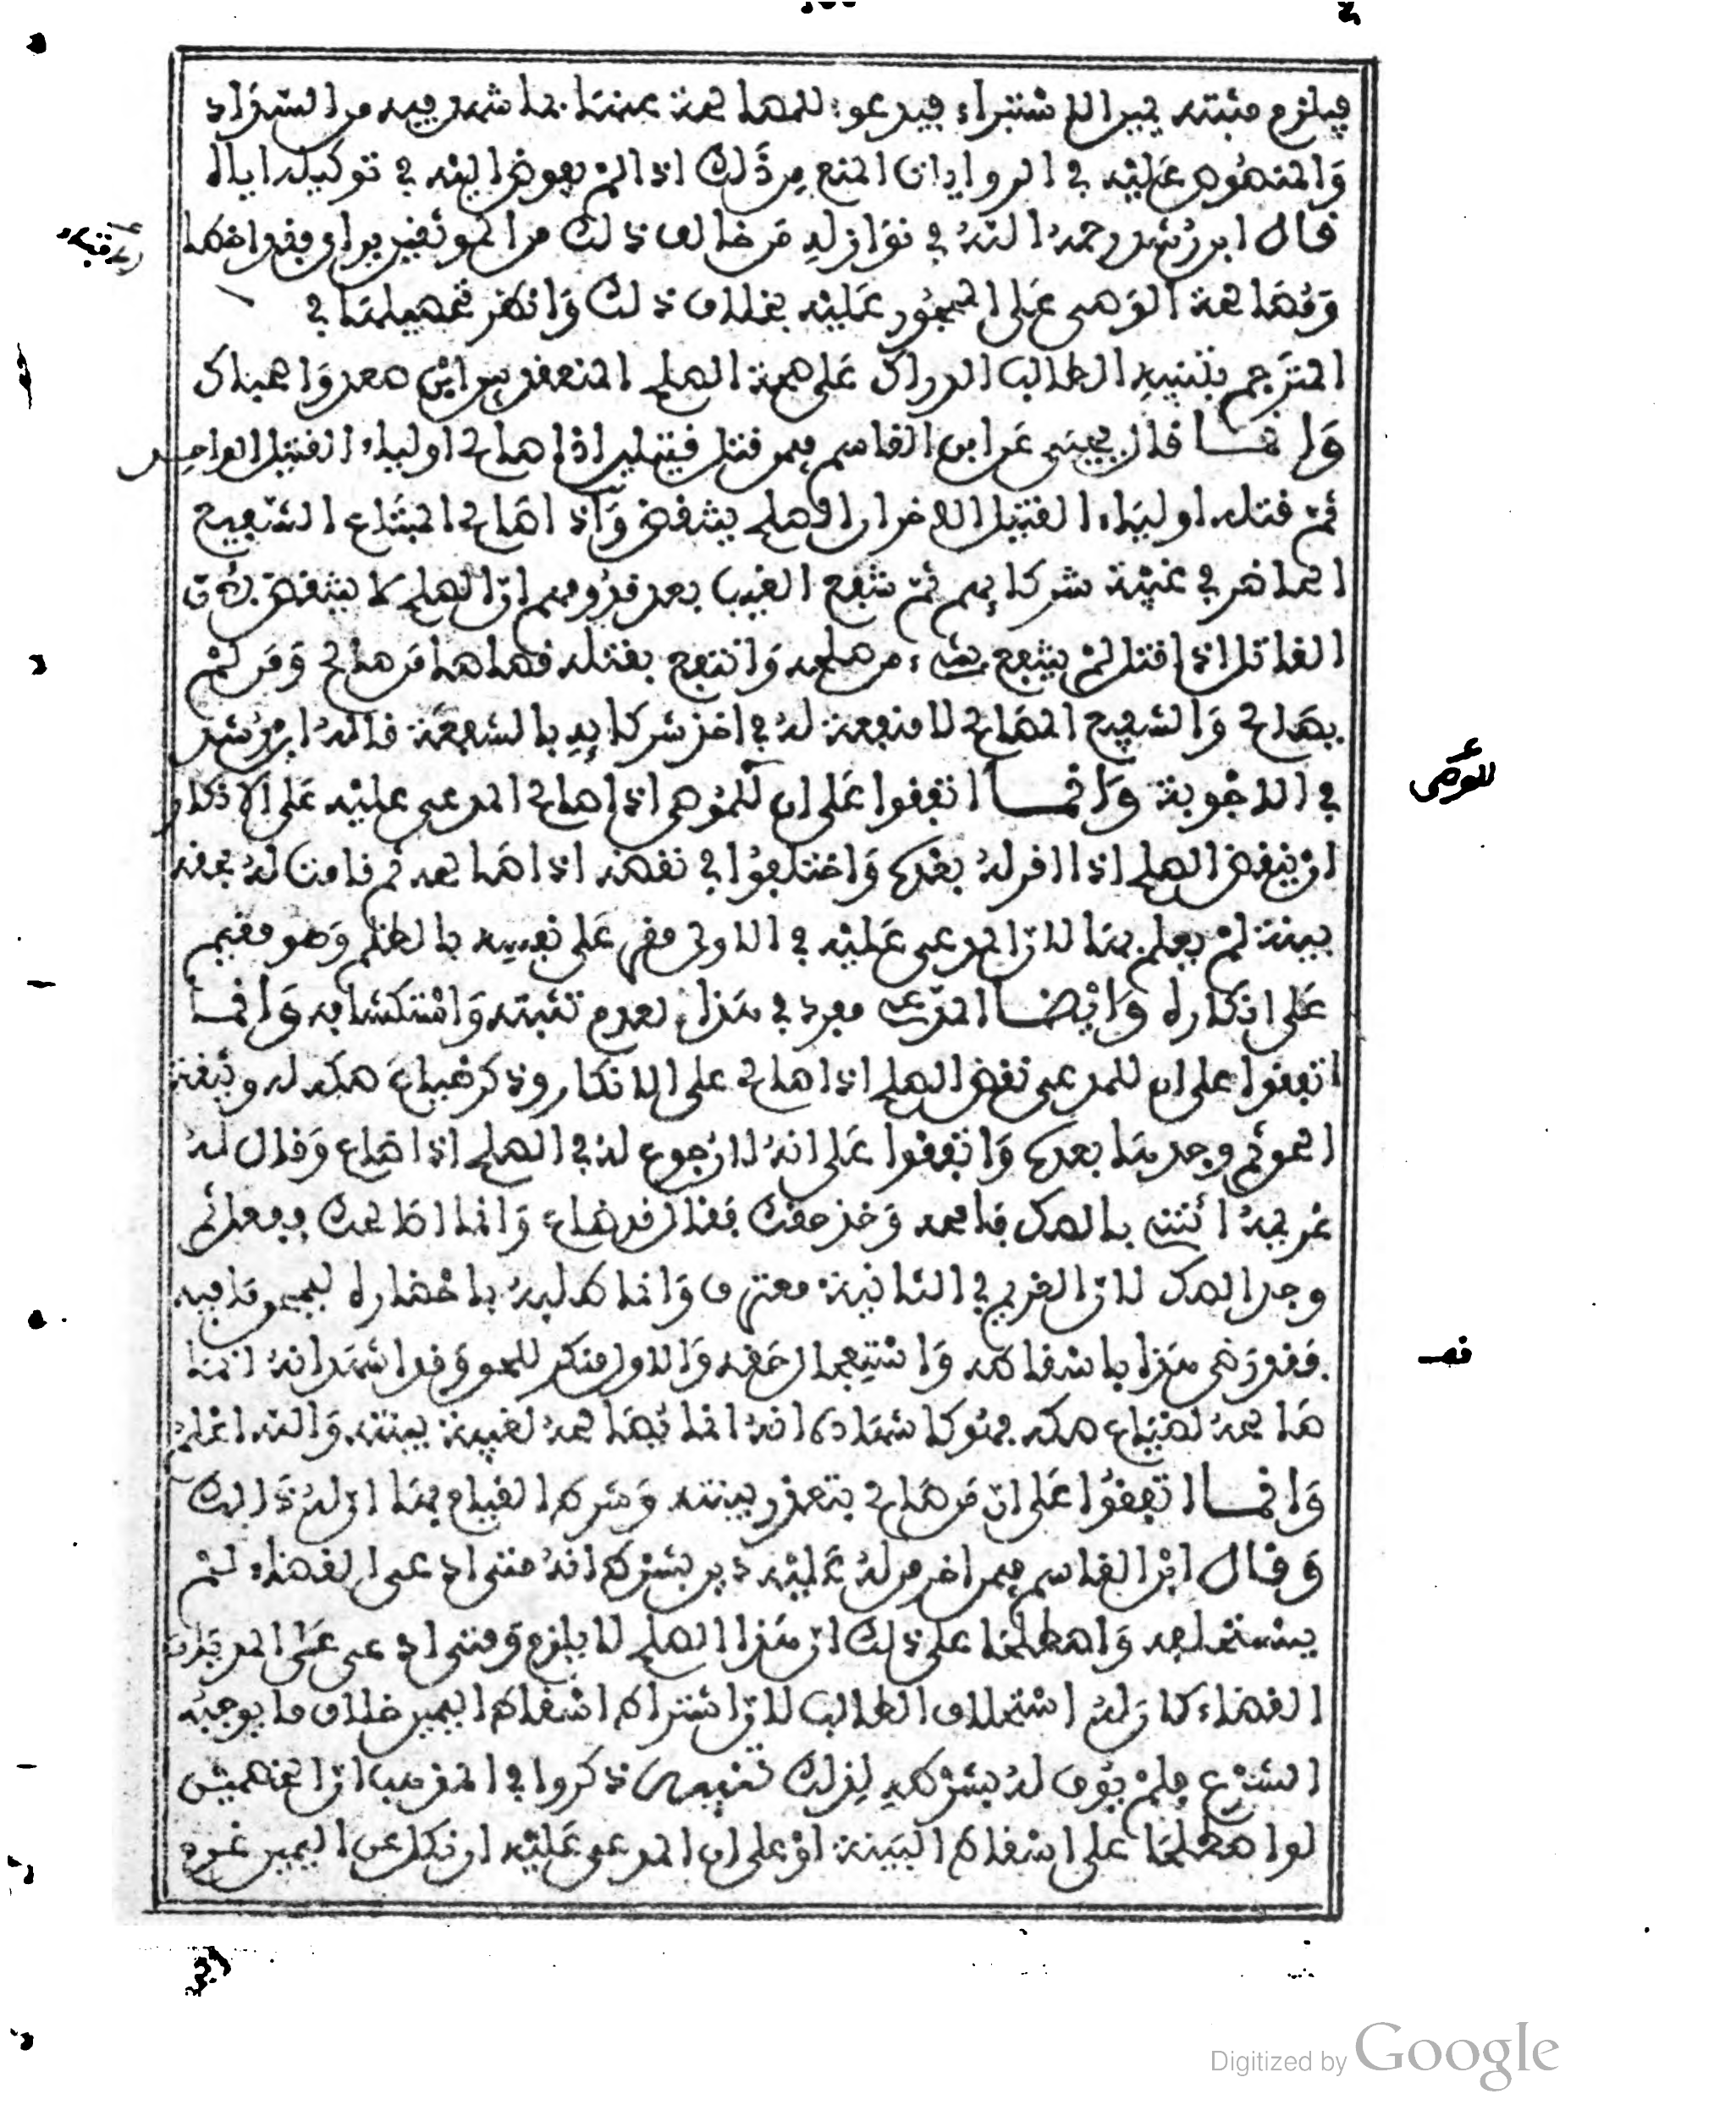 فيلزم مثبته يمين الاستبراء فيدعو للمصالحة عنها بما شهد فيه من السداد
والمنصوص عليه في الروايات المنع من ذلك اذا لم يفوض اليه في توكيله اياه
قال ابن رشد رحمه الله في نوازله من خالف ذلك من الموثقين براي فقد اخطا
ومصالحة الوصي على المحجور عليه بخلاف ذلك وانظر تحصيلها في
المترجم بتنبيه الطالب الدراك على صحة الصلح المنعقد بين ابن صعد والحباك
وانما قال يحيى عن ابن القاسم فيمن قتل قتيلين اذا صالح اولياء القتيل الواحد
ثم قتله اولياء القتيل الاخر ان الصلح ينتقض واذا صالح المبتاع الشفيع
الحاضر في غيبة شركايهم ثم شفع الغيب بعد قدومهم ان الصلح لا ينتقض لان
القاتل اذا قتل لم ينتفع بشيء من صلحه وانتفع بقتله قصاصا من صالح ومن لم
يصالح والشفيع المصالح لا منفعة له في اخذ شركايه بالشفعة قاله ابن رشد
في الاجوبة وانما اتفقوا على ان للموصي اذا صالح المدعى عليه على الانكار
ان ينقض الصلح اذا اقر له بعده واختلفوا في نقضه اذا صالحه ثم قامت له بحقه
بينة لم يعلم بها لان المدعى عليه في الاولى مقر على نفسه بالظلم وهو مقيم
على انكاره وايضا المدعي مفرط في هذا لعدم تثبته واستكشافه وانما
اتفقوا على ان للمدعي نقض الصلح اذا صالح على الانكار وذكر ضياع صكه له وثيقة
الحق ثم وجدها بعده واتفقوا على انه لا رجوع له في الصلح اذا ضاع وقال له
غريمه ائتني بالصك فامحه وخذ حقك فقال قد ضاع وانا اصالحك ففعل ثم
وجد الصك لان الغريم في الثانية معترف وانما طلبه باحضاره ليمحو ما فيه
فقد رضي هذا باسقاطه واستعجال حقه والاول منكر للحق وقد اشهد انه انما
صالحه لضياع صكه فهو كاشهاده انه انما يصالحه لغيبة بينته والله اعلم
وانما اتفقوا على ان من صالح بتعذر بينته وشرط القيام بها ان له ذلك
وقال ابن القاسم فيمن اخر من له عليه دين بشرط انه متى ادعى القضاء لم
يستحلفه واصطلحا على ذلك ان هذا الصلح لا يلزم ومتى ادعى على المديان
القضاء كان له استحلاف الطالب لان اشتراط اسقاط اليمين خلاف ما يوجبه
الشرع فلم يوف له بشرطه لذلك تنبيه ذكروا في المذهب ان الخصمين
لو اصطلحا على اسقاط البينة او على ان المدعى عليه ان نكل عن اليمين غرم
قف